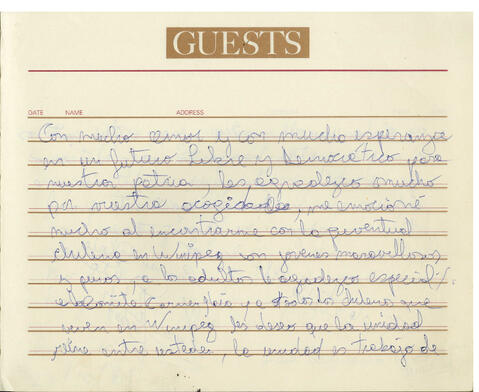 GUESTS
DATE NAME ADDRESS
Con mucho amor y con mucha esperanza
en un futuro Libre y Democrático para
nuestra patria, les agradezco mucho
por vuestra acogida, me emocioné
mucho al encontrarme con la juventud
chilena en Winipeg son jovenes maravillosos
y puros, a los adultos le agradezco especial/.
al Comité y a todos los chilenos que
viven en Winipeg les deseo que la unidad
reine entre ustedes, la unidad es trabajo de